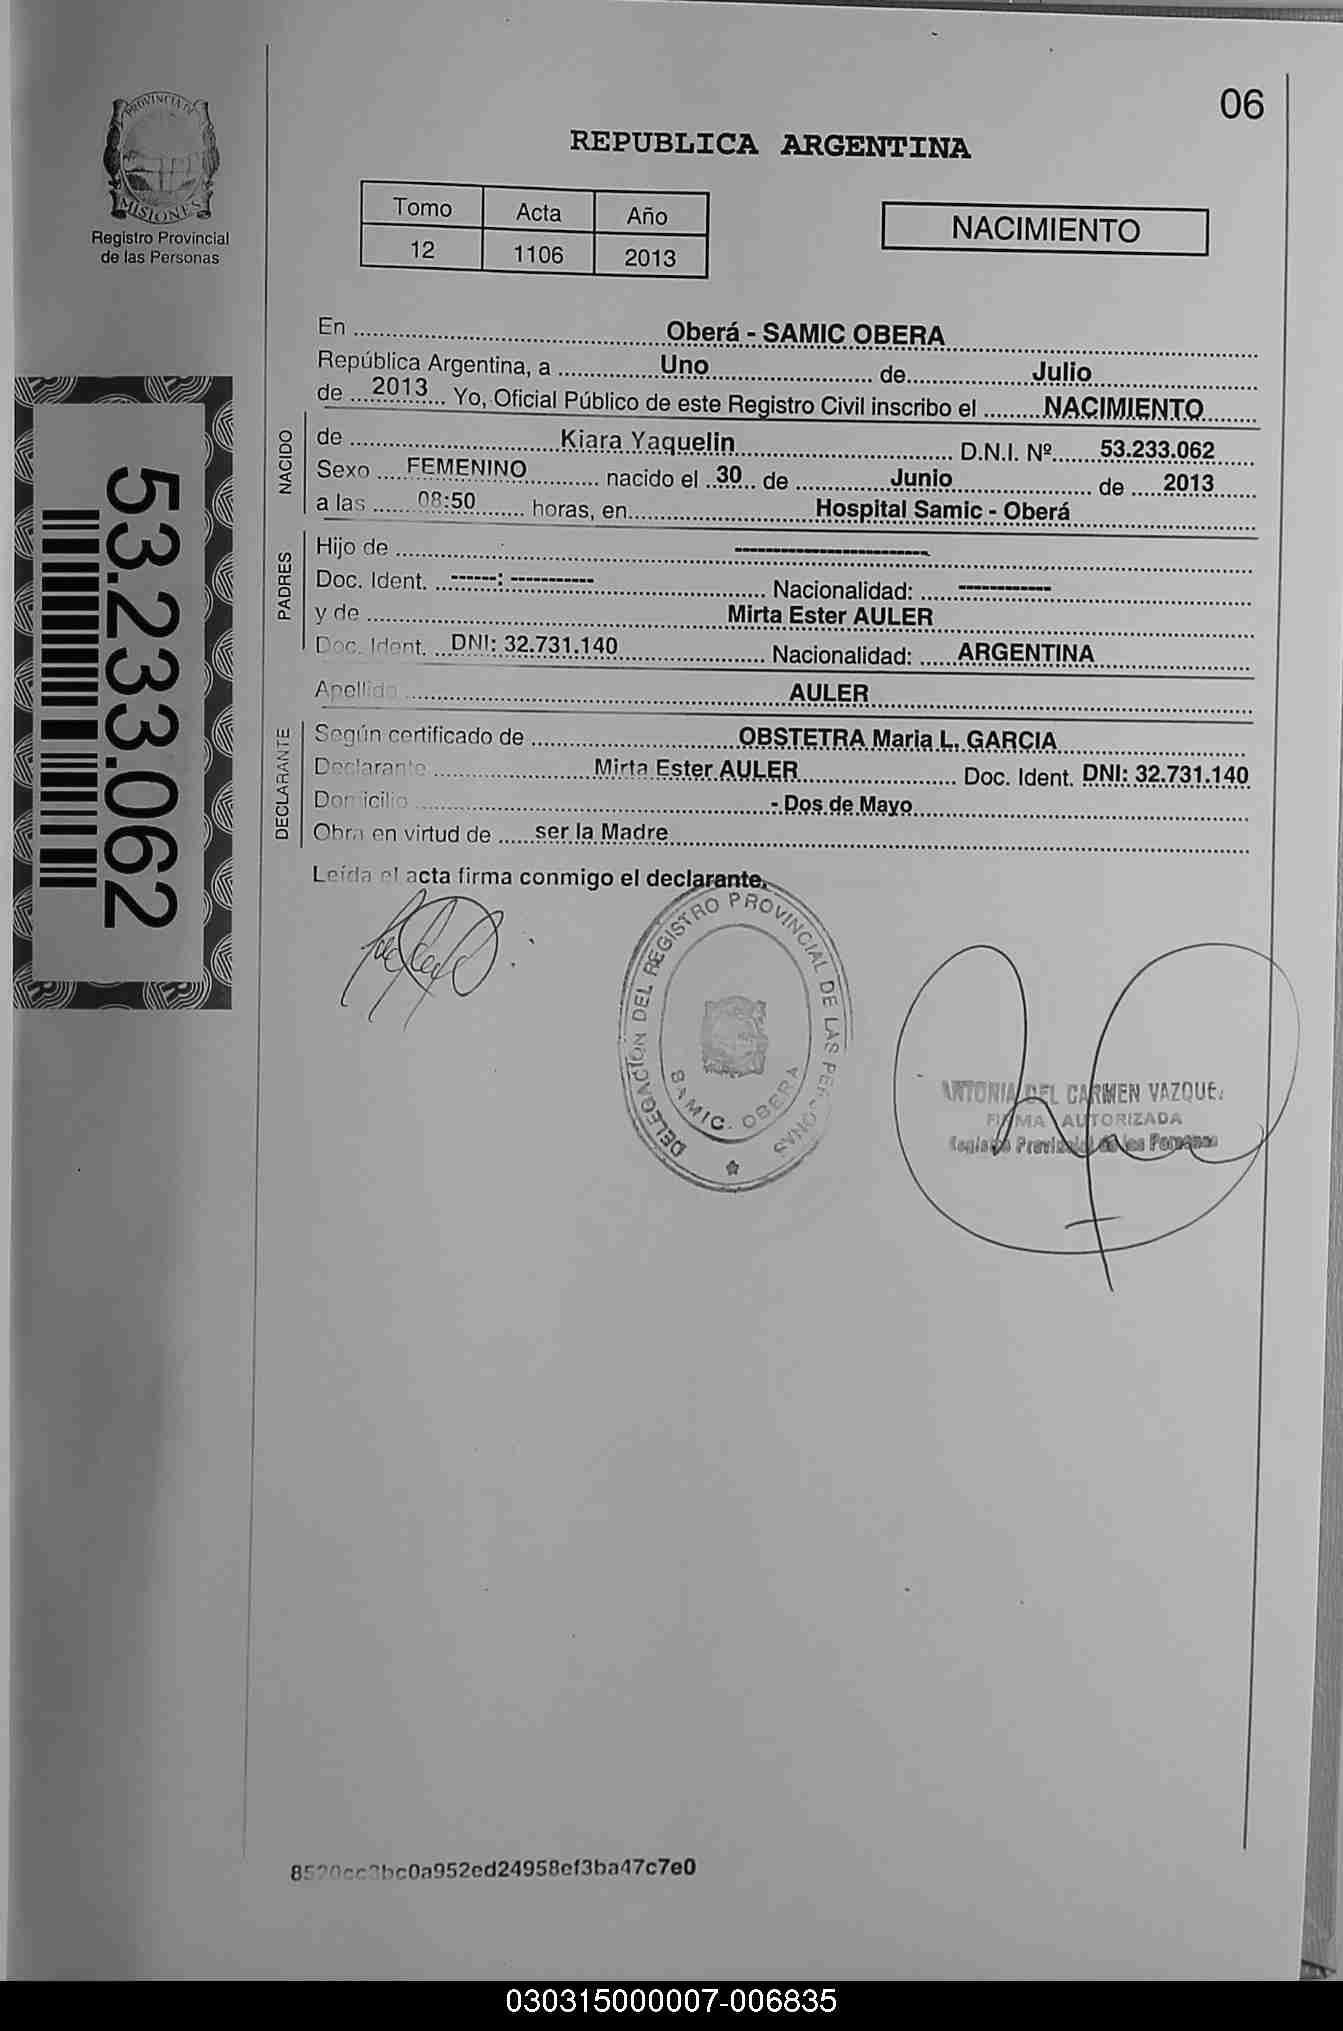 06
PROVINCIA DE
MISIONES
Registro Provincial
de las Personas
REPUBLICA ARGENTINA
Tomo Acta Año
12 1106 2013
NACIMIENTO
En Oberá - SAMIC OBERA
República Argentina, a Uno de Julio
de 2013 Yo, Oficial Público de este Registro Civil inscribo el NACIMIENTO
NACIDO
de Kiara Yaquelin D.N.I. Nº 53.233.062
Sexo FEMENINO nacido el 30 de Junio de 2013
a las 08:50 horas, en Hospital Samic - Oberá
PADRES
Hijo de -------------------------
Doc. Ident. ------: ----------- Nacionalidad: ------------
y de Mirta Ester AULER
Doc. Ident. DNI: 32.731.140 Nacionalidad: ARGENTINA
Apellido AULER
DECLARANTE
Según certificado de OBSTETRA Maria L. GARCIA
Declarante Mirta Ester AULER Doc. Ident. DNI: 32.731.140
Domicilio - Dos de Mayo
Obra en virtud de ser la Madre
Leída el acta firma conmigo el declarante.
53.233.062
DELEGACION DEL REGISTRO PROVINCIAL DE LAS PERSONAS
SAMIC. OBERA
ANTONIA DEL CARMEN VAZQUE
FIRMA AUTORIZADA
Registro Provincial de las Personas
8520cc3bc0a952ed24958ef3ba47c7e0
030315000007-006835